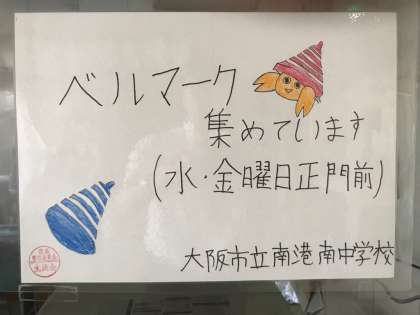 ベルマーク
集めています
(水・金曜日正門前)
大阪市立南港南中学校